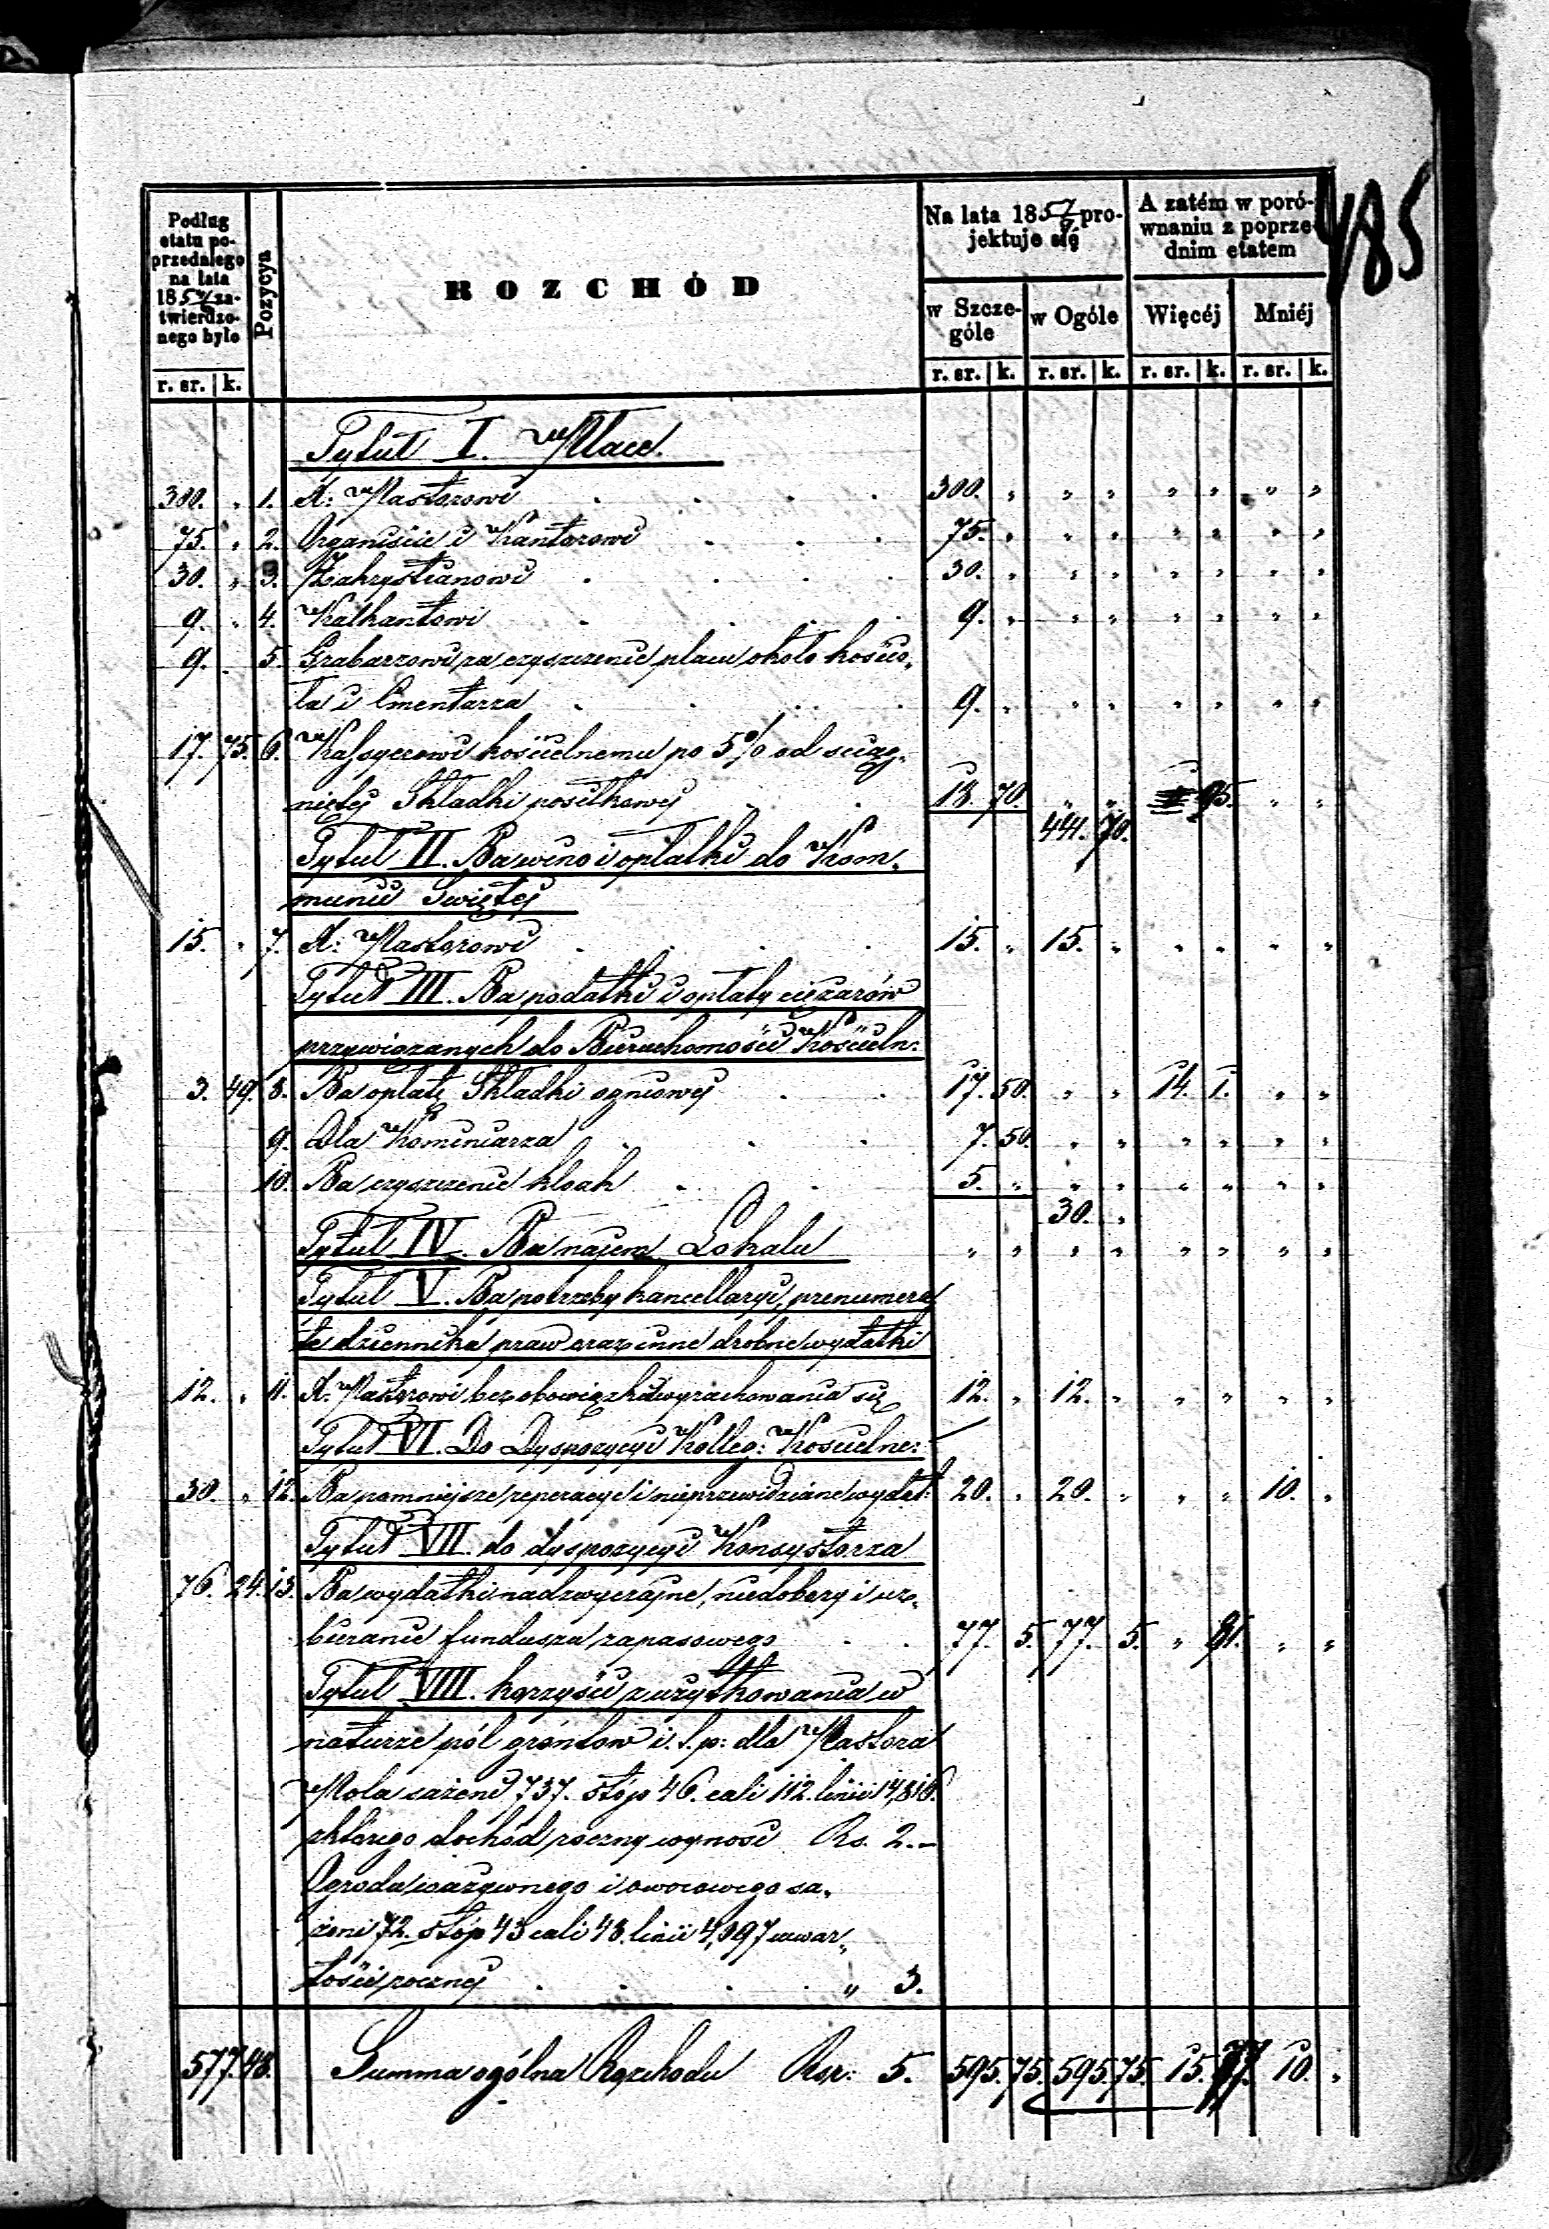 485
Podług etatu poprzedniego na lata 185 zatwierdzonego było
Pozycya
ROZCHÓD
Na lata 185 projektuje się
A zatém w porównaniu z poprzednim etatem
w Szczególe
w Ogóle
Więcéj
Mniéj
r. sr. k. r. sr. k. r. sr. k. r. sr. k. r. sr. k.
Tytuł I. Płace.
300. " 1. X: Pastorowi . . . . 300. " " " " " " "
75. " 2. Organiście i Kantorowi . . . 75. " " " " " " "
30. " 3. Zakrystianowi . . . . 30. " " " " " " "
9. " 4. Kalkantowi . . . . 9. " " " " " " "
9. 5. Grabarzowi za czyszczenie placu około kościo„
ła i Cmentarza . . . . 9. " " " " " " "
17. 75. 6. Kassyerowi kościelnemu po 5% od sciąg„
niętej Składki posiłkowej . . 18. 70. " " 95. " "
441. 70.
Tytuł II. Na wino i opłatki do Kom„
munii Swiętej
15. " 7. X: Pastorowi . . . . 15. " 15. " " " " "
Tytuł III. Na podatki i opłaty ciężarów
przywiązanych do Nieruchomości Kościeln:
3. 49. 8. Na opłatę Składki ogniowej . . 17. 50. " " 14. 1. " "
9. Dla Kominiarza . . . 7. 50. " " " " " "
10. Na czyszczenie kloak . . 5. " " " " " " "
30. "
Tytuł IV. Na najem Lokalu " " " " " " " "
Tytuł V. Na potrzeby kancellaryi, prenumera
tę dziennika praw oraz inne drobne wydatki
12. " 11. X. Pastorowi bez obowiązku wyrachowania się 12. " 12. " " " " "
Tytuł VI. Do Dyspozycyi Kolleg: Koscielne:
30. " 12. Na pomniejsze reperacye i nieprzewidziane wydat: 20. " 20. " " " 10. "
Tytuł VII. do dyspozycyi Konsystorza
76. 24. 13. Na wydatki nadzwyczajne, niedobory i uz„
bieranie funduszu zapasowego . . 77. 5. 77. 5. " 81. " "
Tytuł VIII. korzyści z użytkowania w
naturze pól gróntow i. t. p: dla Pastora
Pola sażeni 737. stóp 46. cali 112. linii 14,816.
z którego dochód roczny wynosi Rs. 2.–
Ogrodu warzywnego i owocowego sa„
żeni 72. stóp 43 cali 48. linii 4,397 war„
tości rocznej . . . . " 3.
577. 48. Summa ogólna Rozchodu Rsr: 5. 595. 75. 595. 75. 15. 77. 10. "